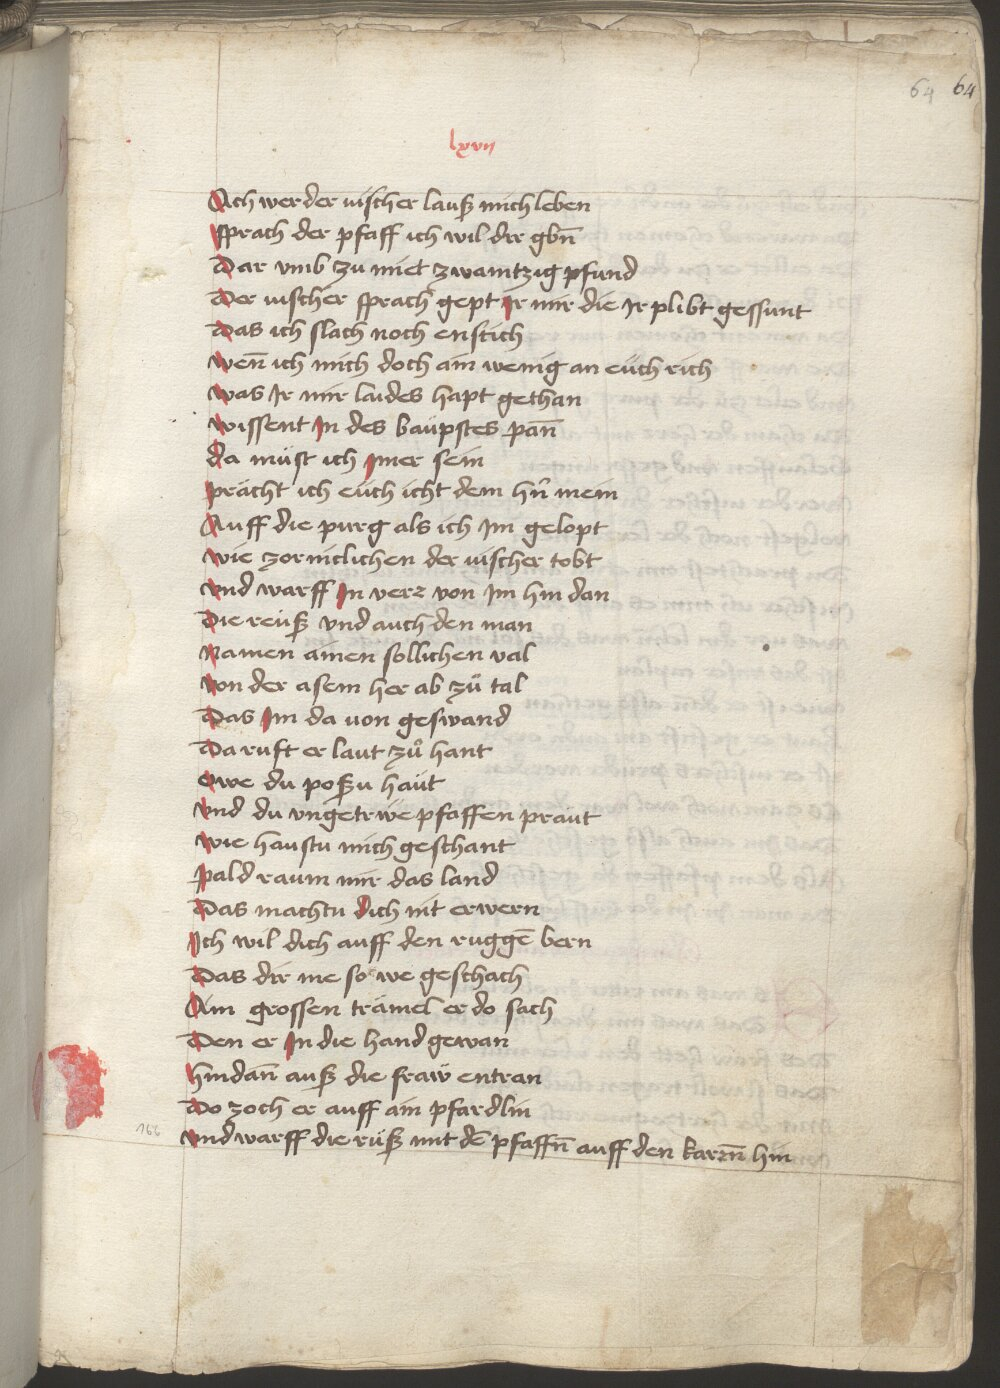 64 64
lxvii
Ach werder vischer lauß mich leben
sprach der pfaff ich wil dir gbn̄
Dar vmb zu miet zwaintzig pfund
Der vischer sprach gept Ir mir die Ir plibt gessunt
Das ich slach noch enstich
wen̄ ich mich doch ain wenig an eüch rich
was Ir mir laides hapt gethan
wissent In des baüpstes pan̄
da müst ich Imer sein
prächt ich eüch icht dem hn̄ mein
Auff die purg als ich Im gelopt
wie zorniclichen der vischer tobt
vnd warff In verz von Im hin dan
Die reüß vnd auch den man
Namen ainen sollichen val
von der asem her ab zů tal
Das Im da von geswand
Da ruft er laut zů hant
Owe du poßu haüt
vnd du vngetrwë pfaffen praüt
wie haustu mich geschant
pald raum mir das land
Das machtu dich nit erwern
Ich wil dich auff den ruggē bern
Das dir nie so we geschach
Ain grossen trämel er do sach
Den er In die hand gewan
hindan̄ auß die fraẅ entran
Do zoch er auff ain pfärdlin
vnd warff die rüß mit dē pfaffn̄ auff den karrn̄ hin
166